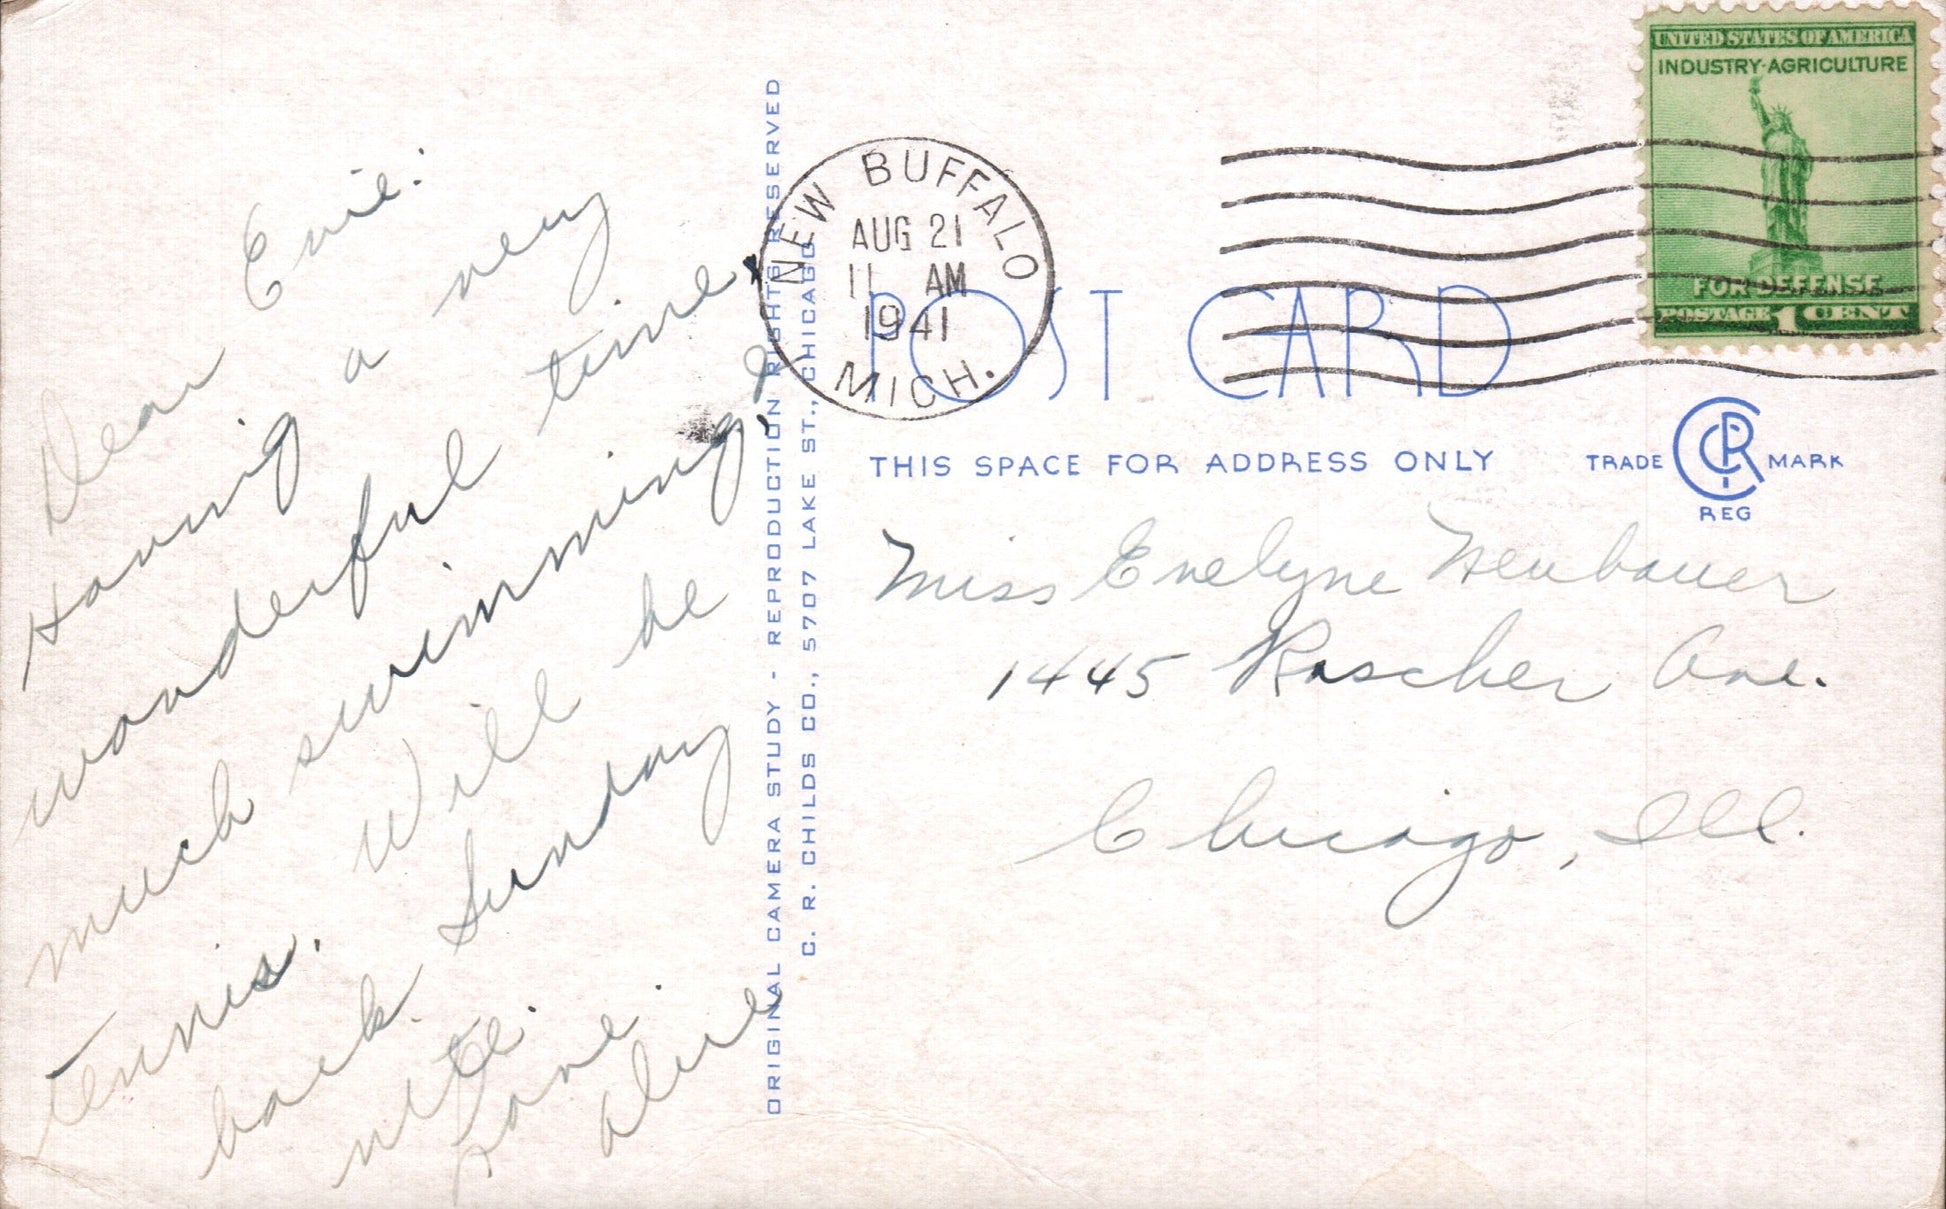 Dear Evie:
Having a very
wonderful time,
much swimming, &
tennis. Will be
back Sunday
nite.
Love
ORIGINAL CAMERA STUDY - REPRODUCTION RIGHTS RESERVED
C. R. CHILDS CO., 5707 LAKE ST., CHICAGO
NEW BUFFALO
AUG 21
11 AM
1941
MICH.
UNITED STATES OF AMERICA
INDUSTRY·AGRICULTURE
FOR DEFENSE
POSTAGE 1 CENT
POST CARD
THIS SPACE FOR ADDRESS ONLY
TRADE CRC MARK
REG
Miss Evelyne Neubauer
1445 Rascher Ave.
Chicago, Ill.